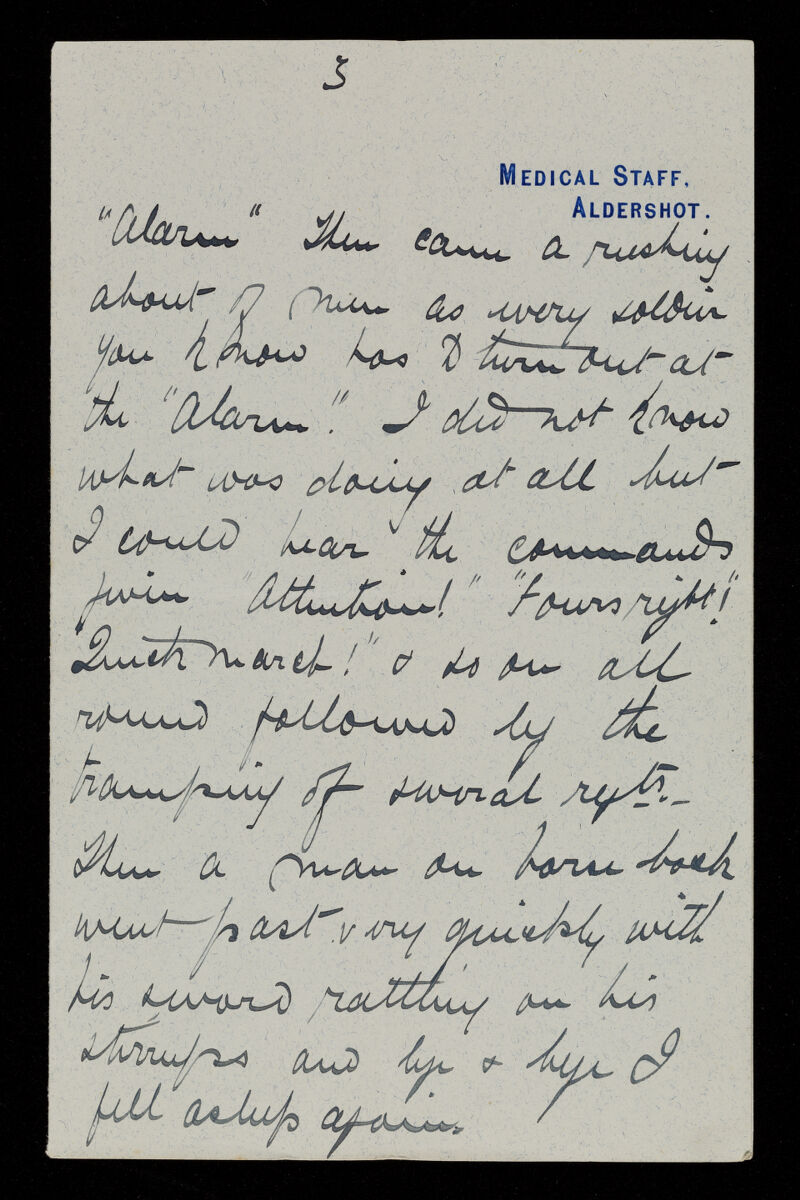 3
MEDICAL STAFF,
ALDERSHOT.
"Alarm" Then came a rushing
about of men as every soldier
you know has to turn out at
the "Alarm". I did not know
what was doing at all but
I could hear the commands
given "Attention!" "Fours right!"
"Quick march!" & so on all
round followed by the
tramping of several regts.
Then a man on horse back
went past very quickly with
his sword rattling on his
stirrups and bye & bye I
fell asleep again.